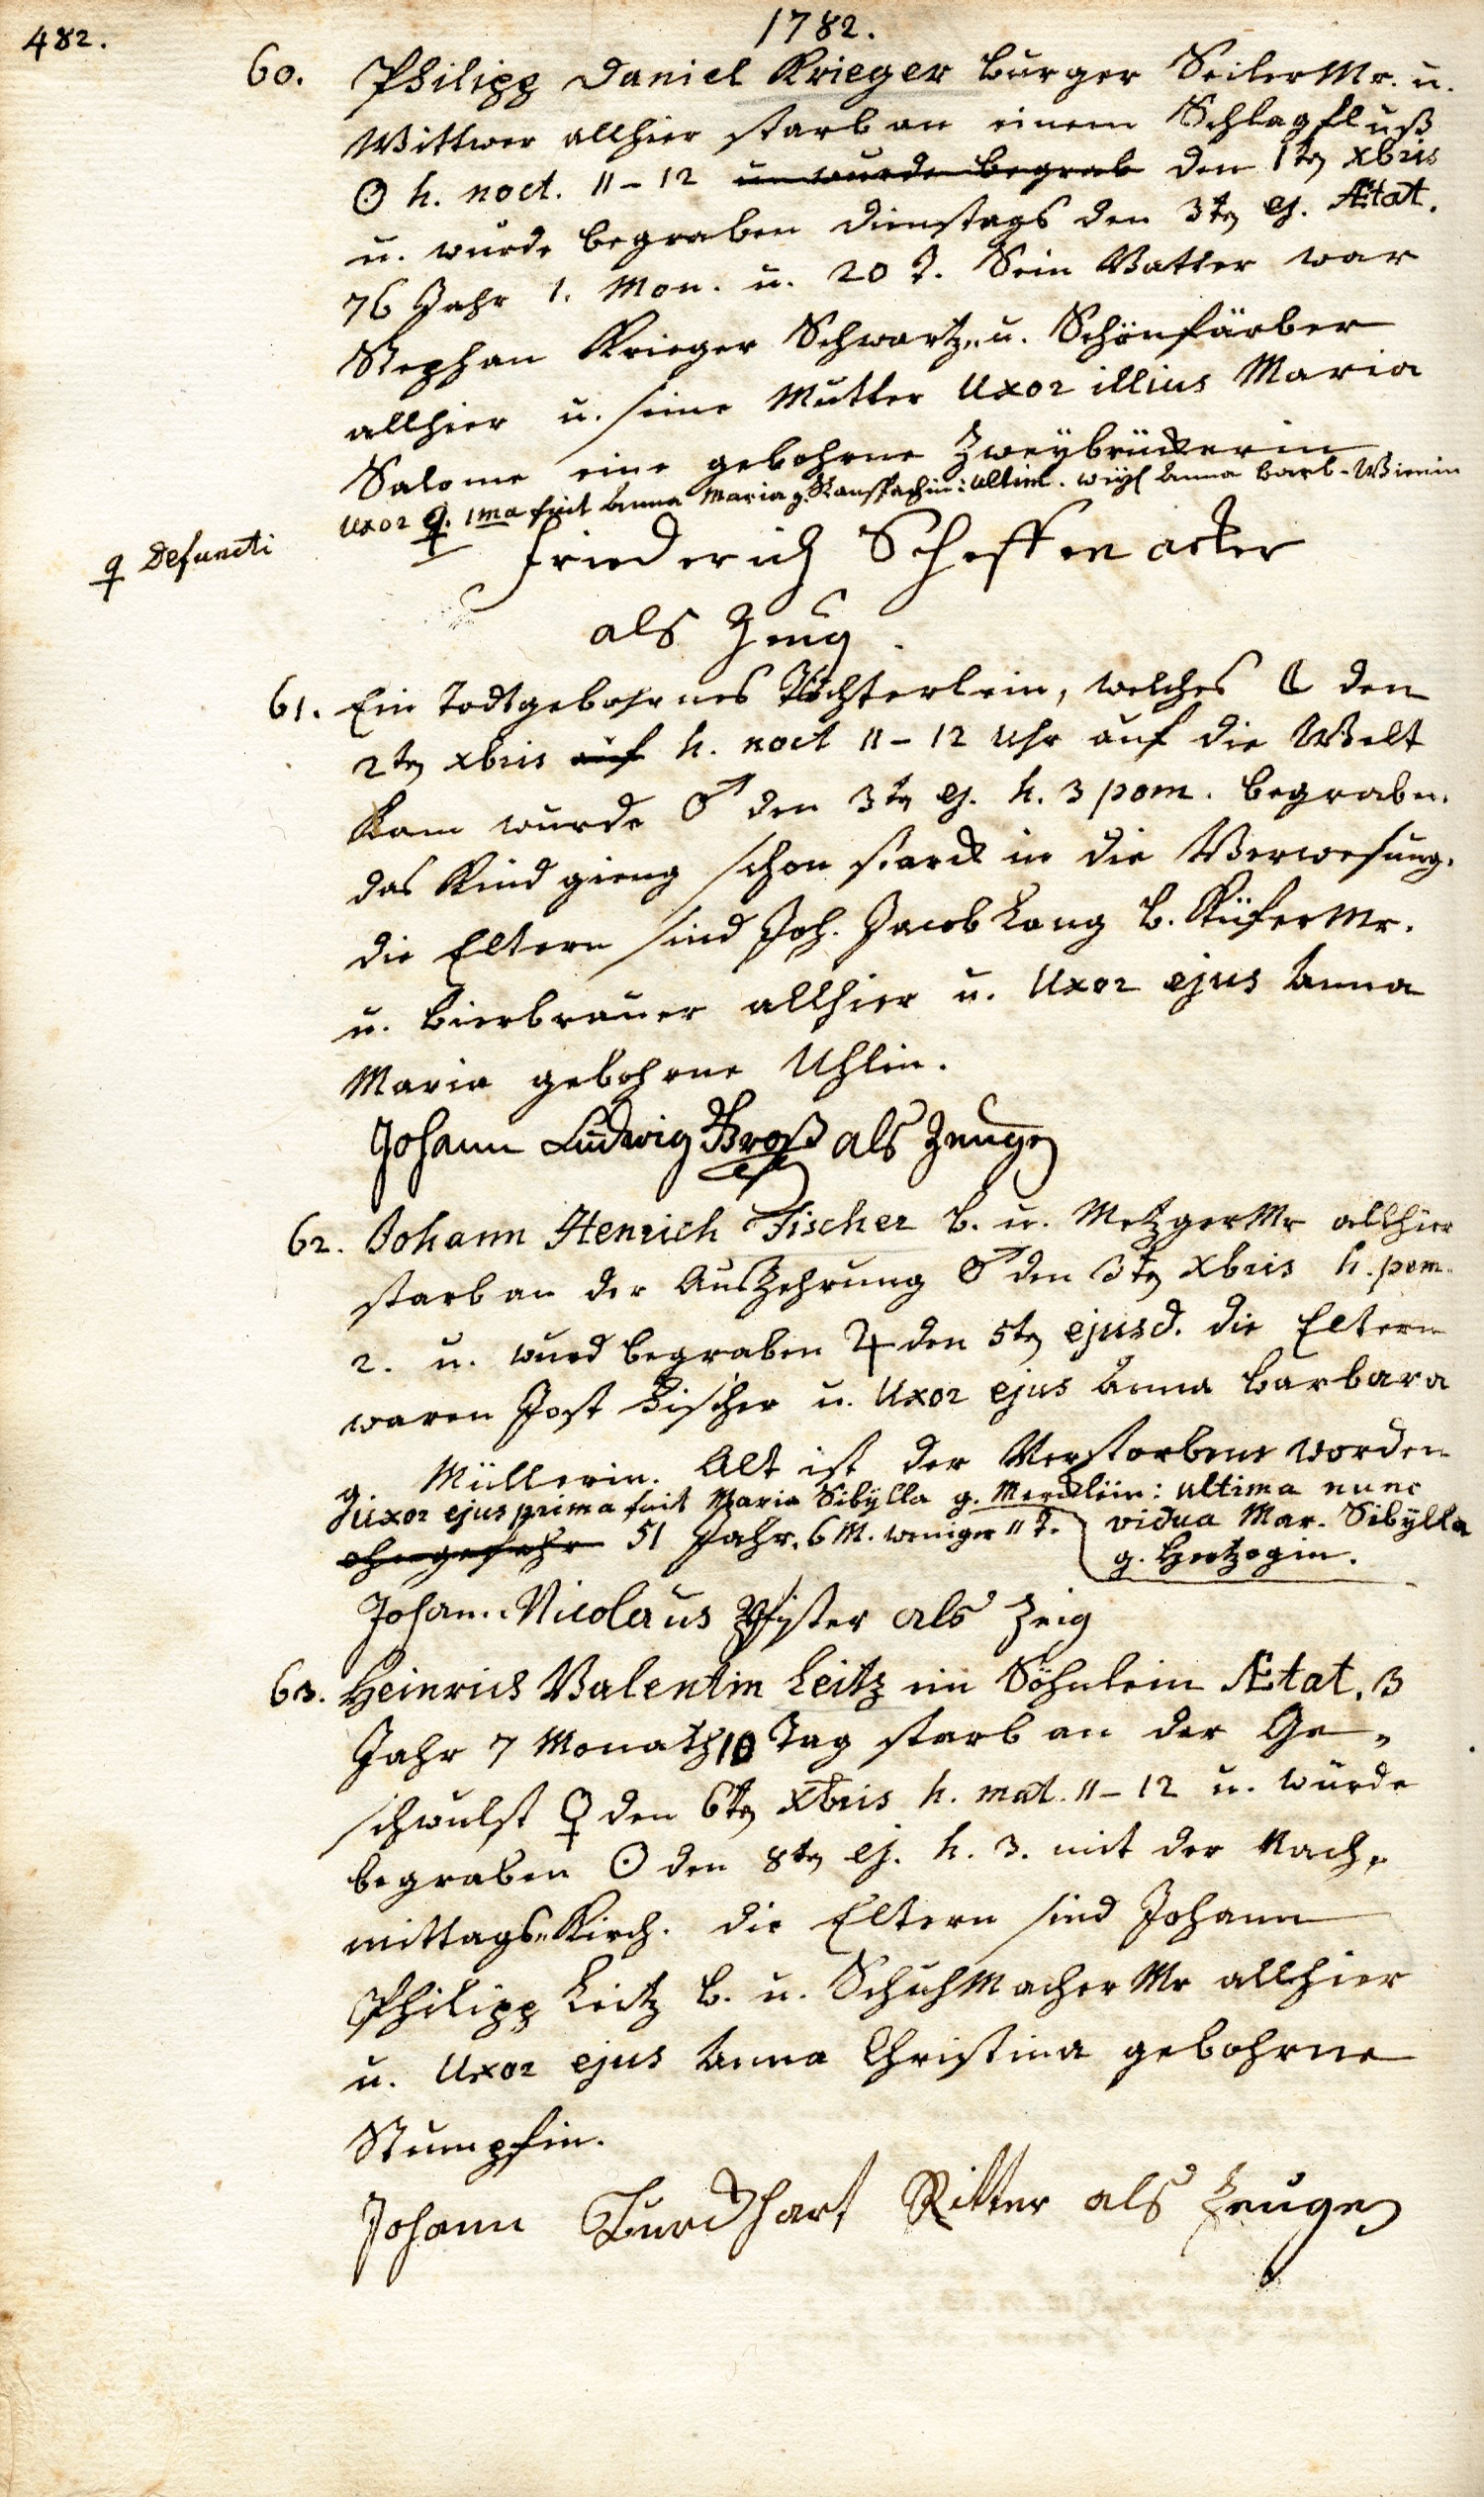 482.
1782.
60. Philipp Daniel Krieger burger Seiler Mr. u.
Wittwer allhier starb an einem Schlagfluß
☉ h. noct. 11-12 u. wurde begrab den 1ten xbris
u. wurde begraben dienstags den 3ten ej. Ætat.
76 Jahr 1. Mon. u. 20 T. Sein Vatter war
Stephan Krieger Schwartz- u. Schönfärber
allhier u. seine Mutter Uxor illius Maria
Salome eine gebohrne Zweybrückerin
Uxor ♀. 1ma fuit Anna Maria g. : ultim. weyl Anna barb.
♀ Defuncti
Friederich Scheffenacker
als Zeug.
61. Ein todtgebohrnes Töchterlein, welches ☾ den
2ten xbris auf h. noct 11-12 Uhr auf die Welt
kam wurde ♂ den 3ten ej. h. 3 pom. begraben.
das Kind gieng schon starck in die Verwesung.
die Eltern sind Joh. Jacob Lang b. Küfer Mr.
u. bierbrauer allhier u. Uxor ejus Anna
Maria gebohrne Uhlin.
Johann Ludwig Groß als Zeuge
62. Johann Henrich Fischer b. u. Metzger Mr allhier
starb an der Auszehrung ♂ den 3ten xbris h. pom.
2. u. wurd begraben ♃ den 5ten ejusd. die Eltern
waren Jost Fischer u. Uxor ejus Anna barbara
g. Müllerin. Alt ist der Verstorbene worden
Uxor ejus prima fuit Maria Sibylla g. Mercklin: ultima nunc
ohngefehr 51 Jahr. 6 M. weniger 11 T. vidua Mar. Sibylla
g. Hertzogin.
Johann Nicolaus Pfister als Zeig
63. Heinrich Valentin Leitz ein Söhnlein Ætat. 3
Jahr 7 Monath 10 Tag starb an der Ge-
schwulst ♀ den 6ten xbris h. mat. 11-12 u. wurde
begraben ☉ den 8ten ej. h. 3. mit der Nach-
mittags-Kirch. die Eltern sind Johann
Philipp Leitz b. u. Schuhmacher Mr allhier
u. Uxor ejus Anna Christina gebohrne
Stumpfin.
Johann Burckhart Ritter als Zeuge